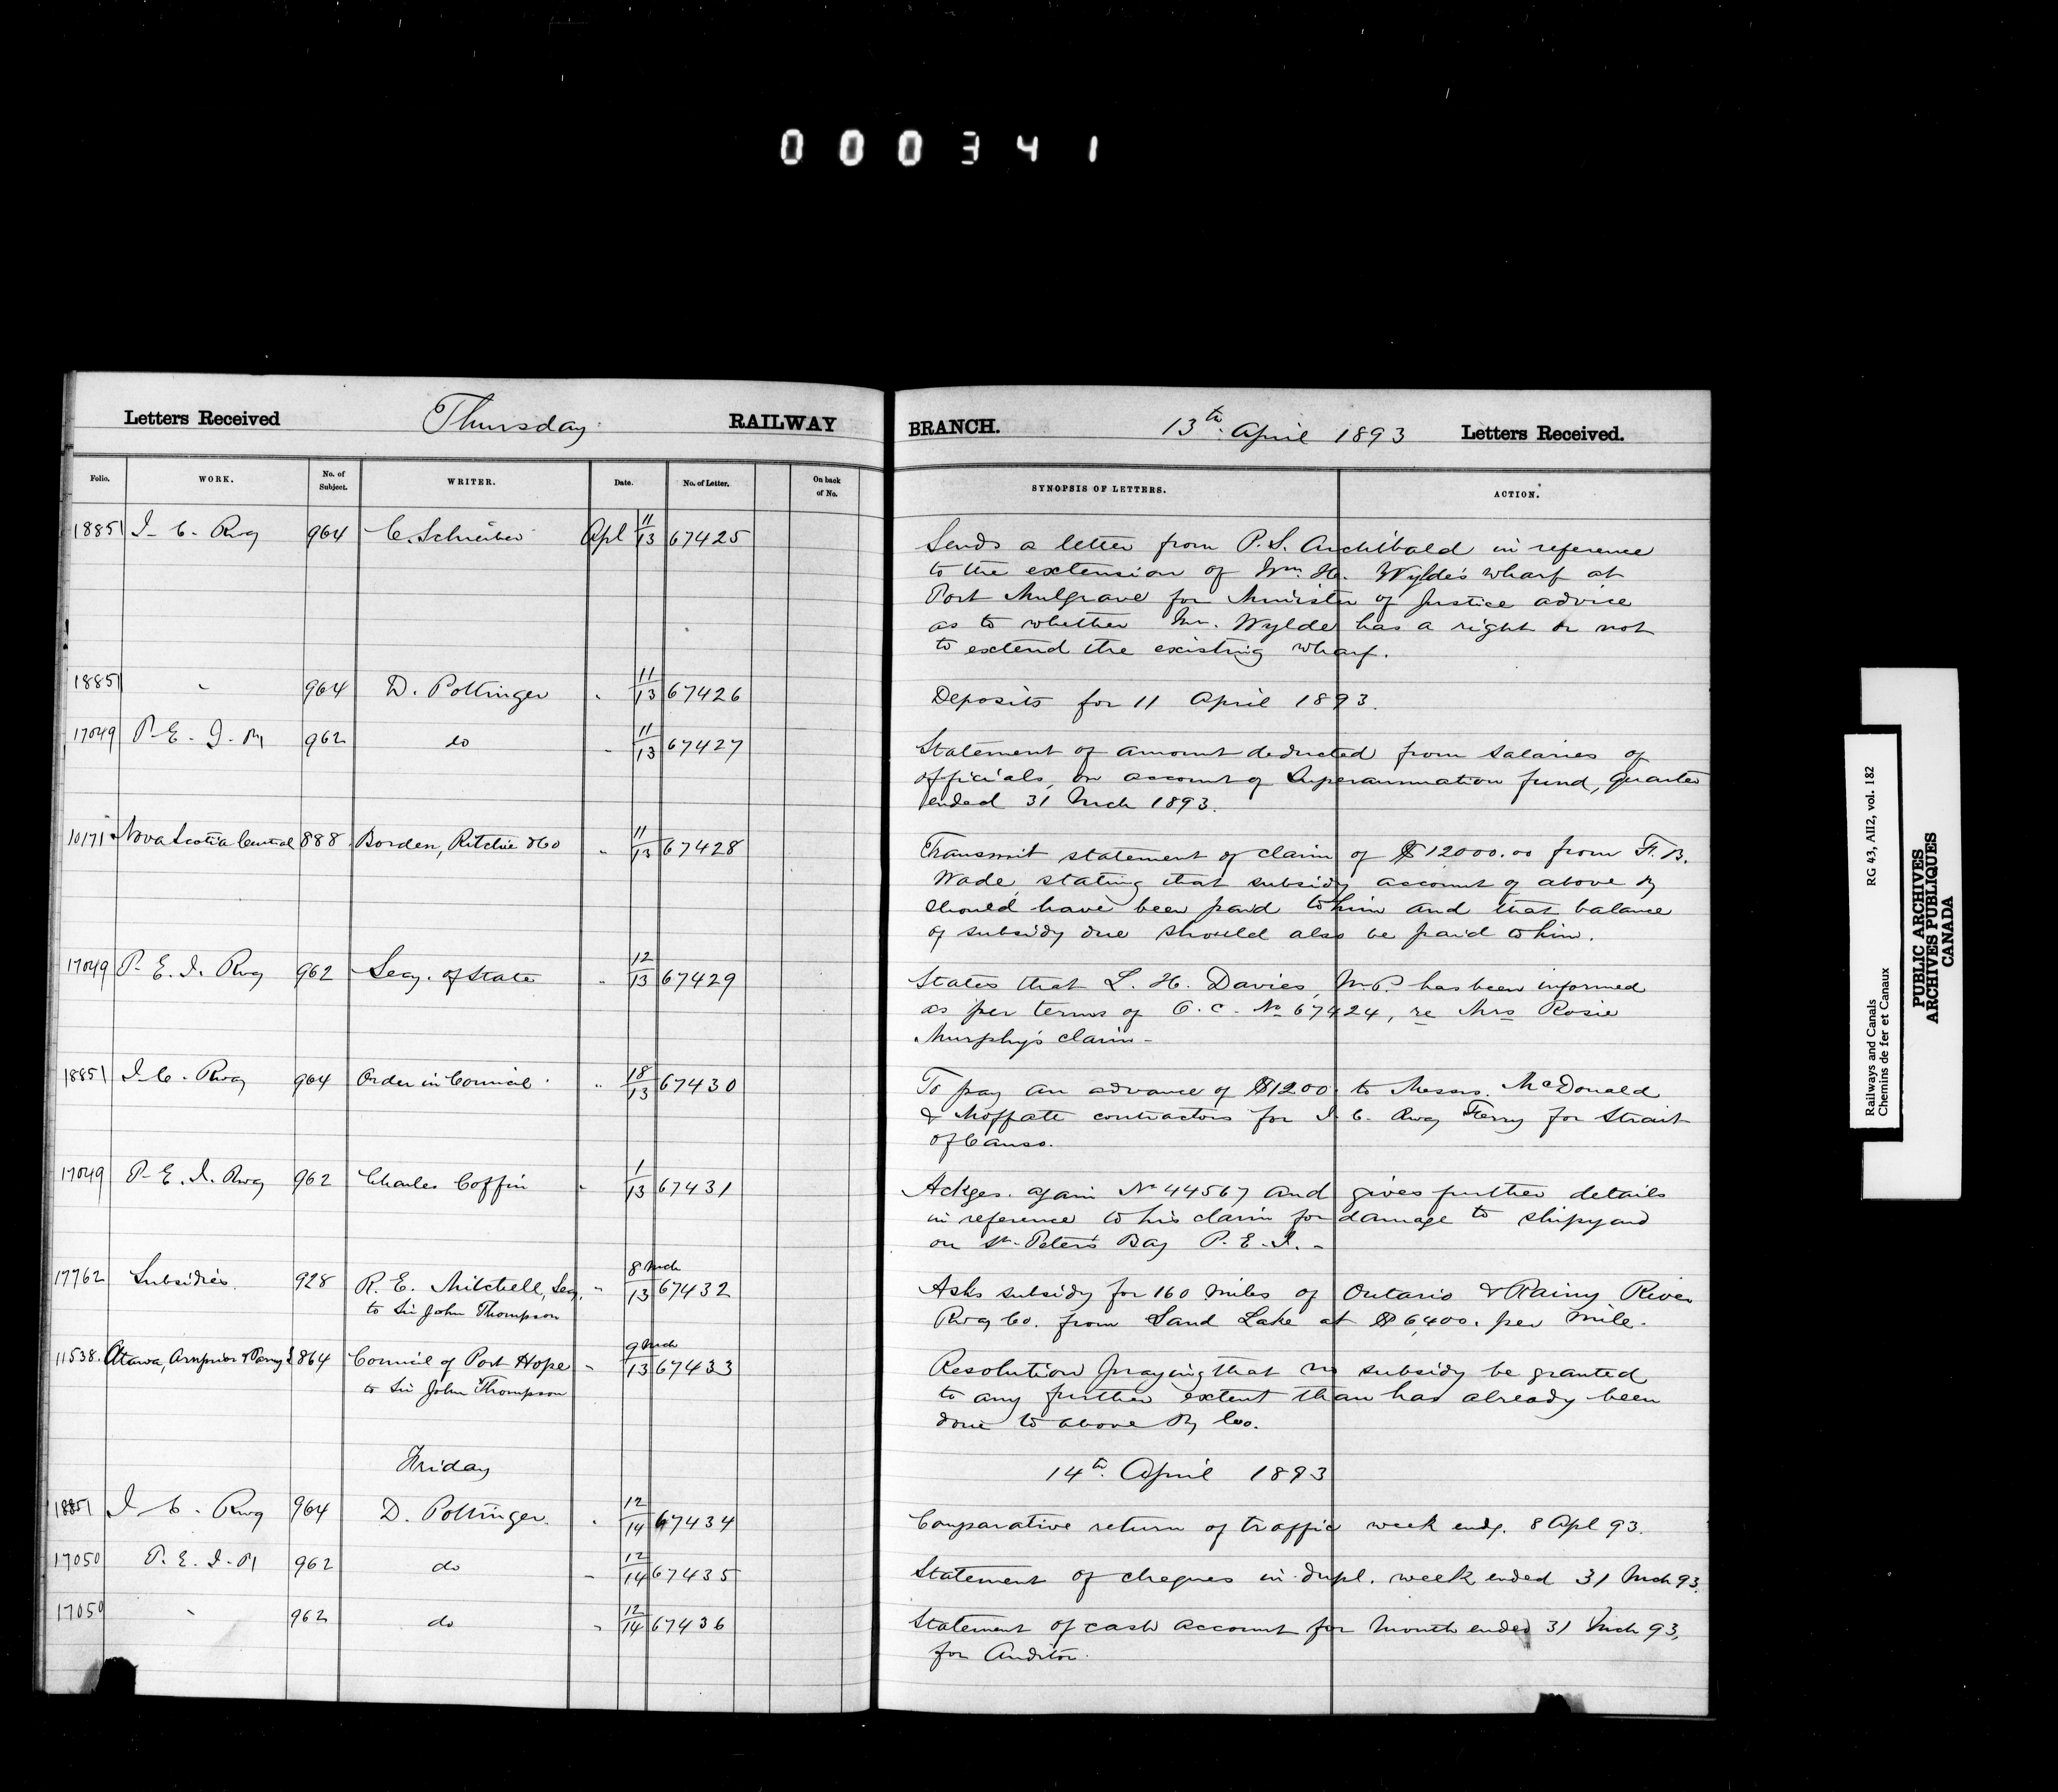 000341
Letters Received Thursday RAILWAY BRANCH. 13th April 1893 Letters Received.
Folio. WORK. No. of Subject. WRITER. Date. No. of Letter. On back of No. SYNOPSIS OF LETTERS. ACTION.
18851 I. C. Rwy 964 C. Schreiber Apl 11/13 67425 Sends a letter from P. S. Archibald in reference
to the extension of Wm. H. Wylde's wharf at
Port Mulgrave for Minister of Justice advice
as to whether Mr. Wylde has a right or not
to extend the existing wharf.
18851 " 964 D. Pottinger " 11/13 67426 Deposits for 11 April 1893.
17049 P. E. I. Ry 962 do " 11/13 67427 Statement of amount deducted from salaries of
officials, on account of Superannuation fund, quarter
ended 31 Mch 1893.
10171 Nova Scotia Central 888 Borden, Ritchie & Co " 11/13 67428 Transmit statement of claim of $12000.00 from F. B.
Wade, stating that subsidy account of above Ry
should have been paid to him and that balance
of subsidy due should also be paid to him.
17049 P. E. I. Rwy 962 Secy. of State " 12/13 67429 States that L. H. Davies, M.P. has been informed
as per terms of O. C. No 67424, re Mrs Rosie
Murphy's claim -
18851 I. C. Rwy 964 Order in Council " 18/13 67430 To pay an advance of $1200 to Messrs. McDonald
& Moffatt contractors for I. C. Rwy Ferry for Strait
of Canso.
17049 P. E. I. Rwy 962 Charles Coffin " 1/13 67431 Ackges. again No 44567 and gives further details
in reference to his claim for damage to shipyard
on St. Peter's Bay P. E. I. -
17762 Subsidies 928 R. E. Mitchell, Secy. " 8 Mch/13 67432 Asks subsidy for 160 miles of Ontario & Rainy River
to Sir John Thompson Rwy Co. from Sand Lake at $6,400. per mile.
11538. Ottawa, Arnprior & Parry S 864 Council of Port Hope " 9 Mch/13 67433 Resolution praying that no subsidy be granted
to Sir John Thompson to any further extent than has already been
done to above Ry Co.
Friday 14th April 1893
18851 I. C. Rwy 964 D. Pottinger. " 12/14 67434 Comparative return of traffic week endg. 8 Apl 93.
17050 P. E. I. Ry 962 do " 12/14 67435 Statement of cheques in dupl. week ended 31 Mch 93.
17050 " 962 do " 12/14 67436 Statement of cash account for month ended 31 Mch 93,
for Auditor.
Railways and Canals RG 43, AII2, vol. 182
Chemins de fer et Canaux
PUBLIC ARCHIVES
ARCHIVES PUBLIQUES
CANADA